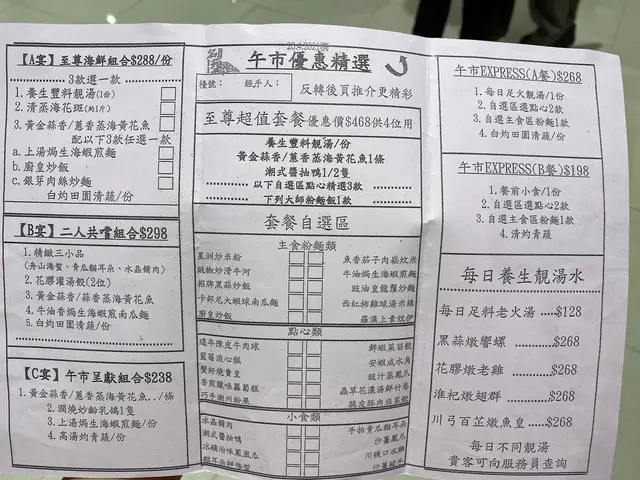 【A宴】至尊海鮮組合$288/份
3款選一款
1. 養生豐料靚湯(1份)
2. 清蒸海花斑(約1斤)
3. 黃金蒜香/蔥香蒸海黃花魚
配以下3款任選一款
a. 上湯焗生海蝦煎麵
b. 廚皇炒飯
c. 銀芽肉絲炒麵
白灼田園清蔬/份
【B宴】二人共嚐組合$298
1. 精緻三小品
(舟山海蜇、青瓜貓耳朵、水晶餚肉)
2. 花膠灌湯餃(2位)
3. 黃金蒜香/蒜香蒸海黃花魚
4. 牛油香焗生海蝦煎南瓜麵
5. 白灼田園清蔬/份
【C宴】午市呈獻組合$238
1. 黃金蒜香/蔥香蒸海黃花魚../條
2. 潤燒炒齡乳鴿1隻
3. 上湯焗生海蝦煎麵/份
4. 高湯灼青蔬/份
午市優惠精選
檯號:
經手人:
反轉後頁推介更精彩
至尊超值套餐優惠價$468供4位用
養生豐料靚湯/份
黃金蒜香/蔥香蒸海黃花魚1條
潮式醬抽鴨1/2隻
以下自選區點心精選3款
下列大師粉麵飯1款
套餐自選區
主食粉麵類
星洲炒米粉
魚香茄子肉崧炆米
豉椒炒滑牛河
牛油焗生海蝦煎麵
招牌蒜蓉炒飯
豉油皇龍鬚炒麵
卡邦尼大蝦球南瓜麵
西紅柿雞球湯米線
廚皇炒飯
羅漢上素炆伊
點心類
遠年陳皮牛肉球
鮮蝦菜苗餃
藍莓流心糕
安蝦咸水角
蟹籽燒賣皇
豉汁蒸鳳爪
香煎臘味蘿蔔糕
蟲草花濃湯鮮竹卷
巧手潮州粉果
脆皮豚肉韭菜餃
小食類
水晶餚肉
手拍青瓜貓耳朵
潮式醬抽鴨
沙薑鳳爪
冰鎮滷味鳳凰瓜
川辣口水雞
午市EXPRESS(A餐)$268
1. 每日足火靚湯/份
2. 自選區選點心2款
3. 自選主食區粉麵1款
4. 白灼田園清蔬/份
午市EXPRESS(B餐)$198
1. 餐前小食/1份
2. 自選區點心/1款
3. 自選主食區粉麵1款
4. 清灼青蔬
每日養生靚湯水
每日足料老火湯....$128
黑蒜燉響螺......$268
花膠燉老雞......$268
淮杞燉翅群......$268
川弓百芷燉魚皇....$268
每日不同靚湯
貴客可向服務員查詢